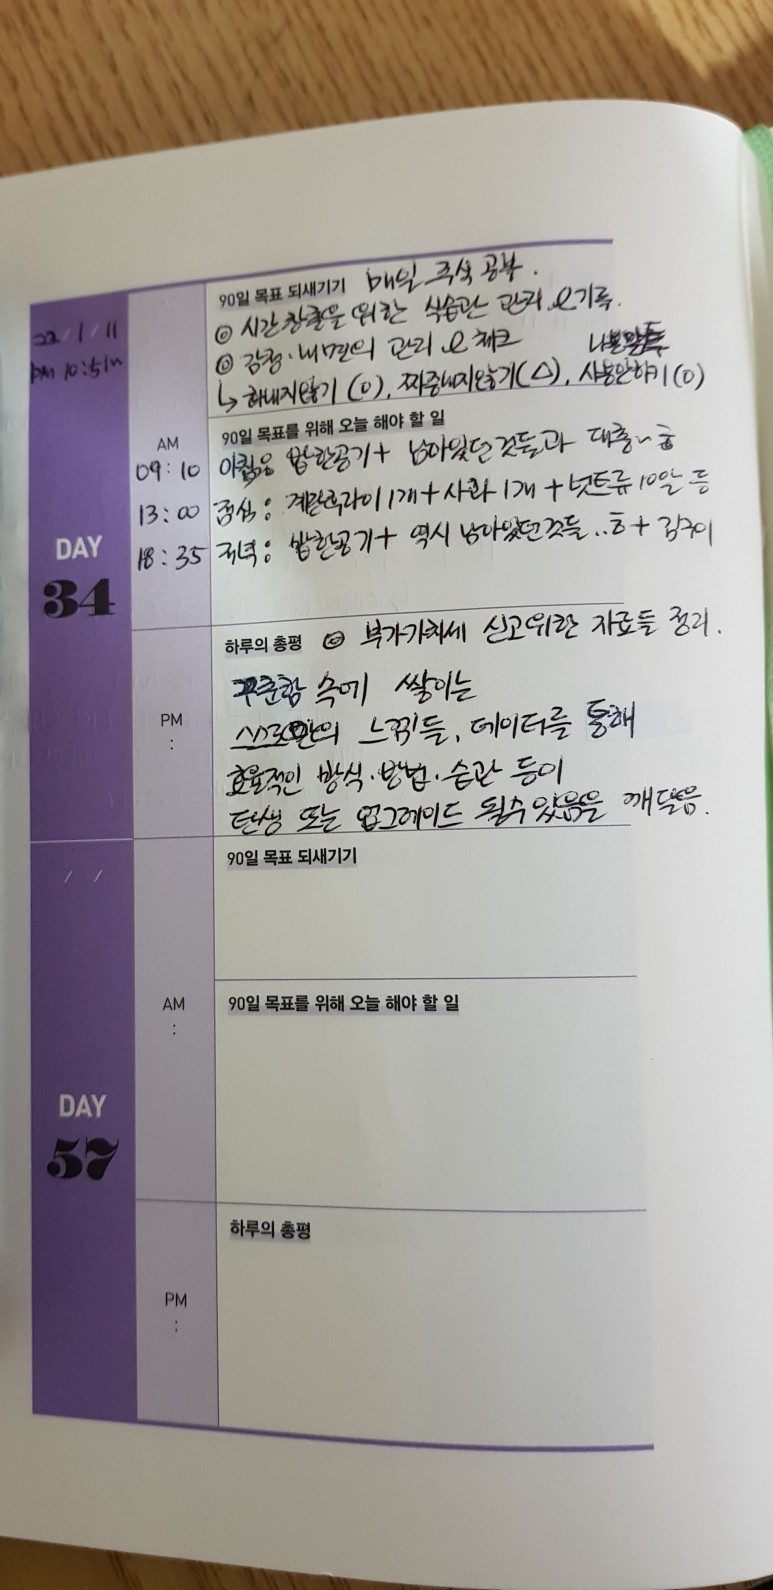 22 / 1 / 11
PM 10:51
90일 목표 되새기기 매일 주식 공부.
◎ 시간 창출을 위한 식습관 관리 & 기록.
◎ 감정·내면의 관리 & 체크
나쁜말투
↳ 화내지않기 (O), 짜증내지않기(△), 사용안하기(O)
90일 목표를 위해 오늘 해야 할 일
AM
09:10 아침: 밥한공기+ 남아있던 것들과 대충~ㅎ
13:00 점심: 계란후라이 1개+ 사과 1개 + 넛트류 10알 등
18:35 저녁: 밥한공기+ 역시 남아있던것들..ㅎ + 김구이
DAY
34
하루의 총평 ◎ 부가가치세 신고위한 자료들 정리.
꾸준함 속에 쌓이는
스스로만의 느낌들, 데이터를 통해
PM
:
효율적인 방식·방법·습관 등이
탄생 또는 업그레이드 될수 있음을 깨달음.
/ /
90일 목표 되새기기
AM
:
90일 목표를 위해 오늘 해야 할 일
DAY
57
하루의 총평
PM
: